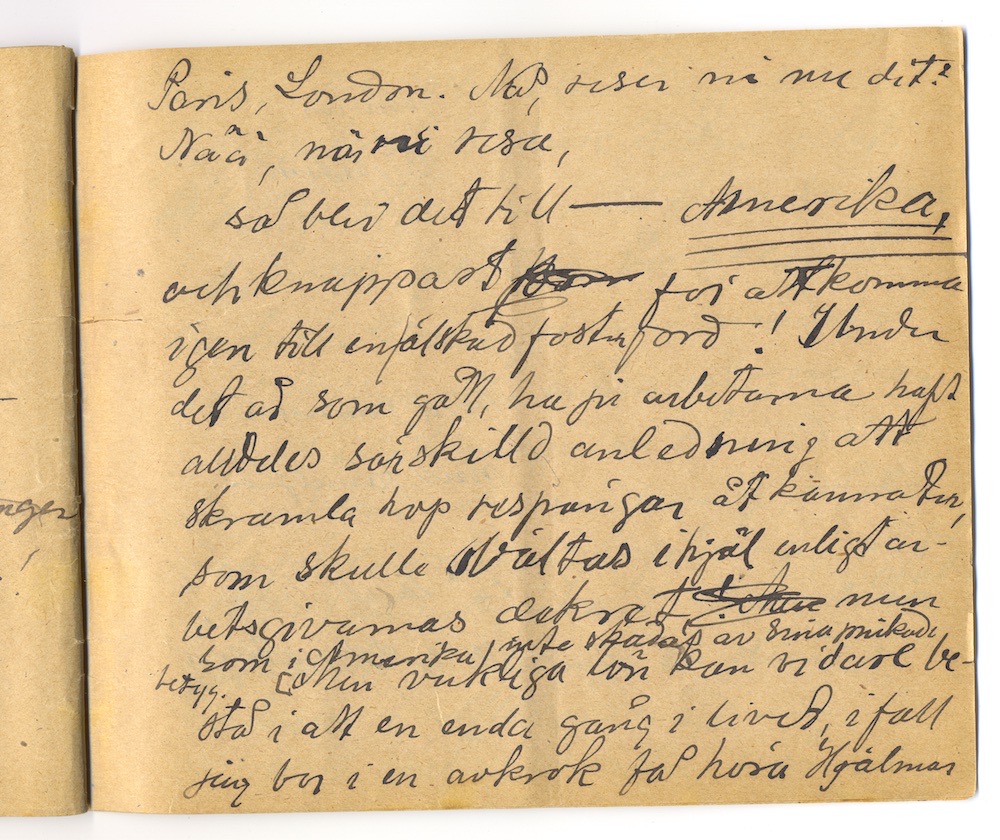 nger
Paris, London. Nå, reser ni nu dit?
Nää, när vi resa,
så blir det till — Amerika,
och knappast för att komma
igen till en älskad fosterjord! Under
det år som gått, ha ju arbetarna haft
alldeles särskilld anledning att
skramla hop respängar åt kamrater,
som skulle svältas ihjäl enligt ar-
betsgivarnas dekret men
som i Amerika inte skadas av sina prickade
betyg.
[Men verkliga lön kan vidare be-
stå i att en enda gång i livet, ifall
jag bor i en avkrok få höra Hjalmar